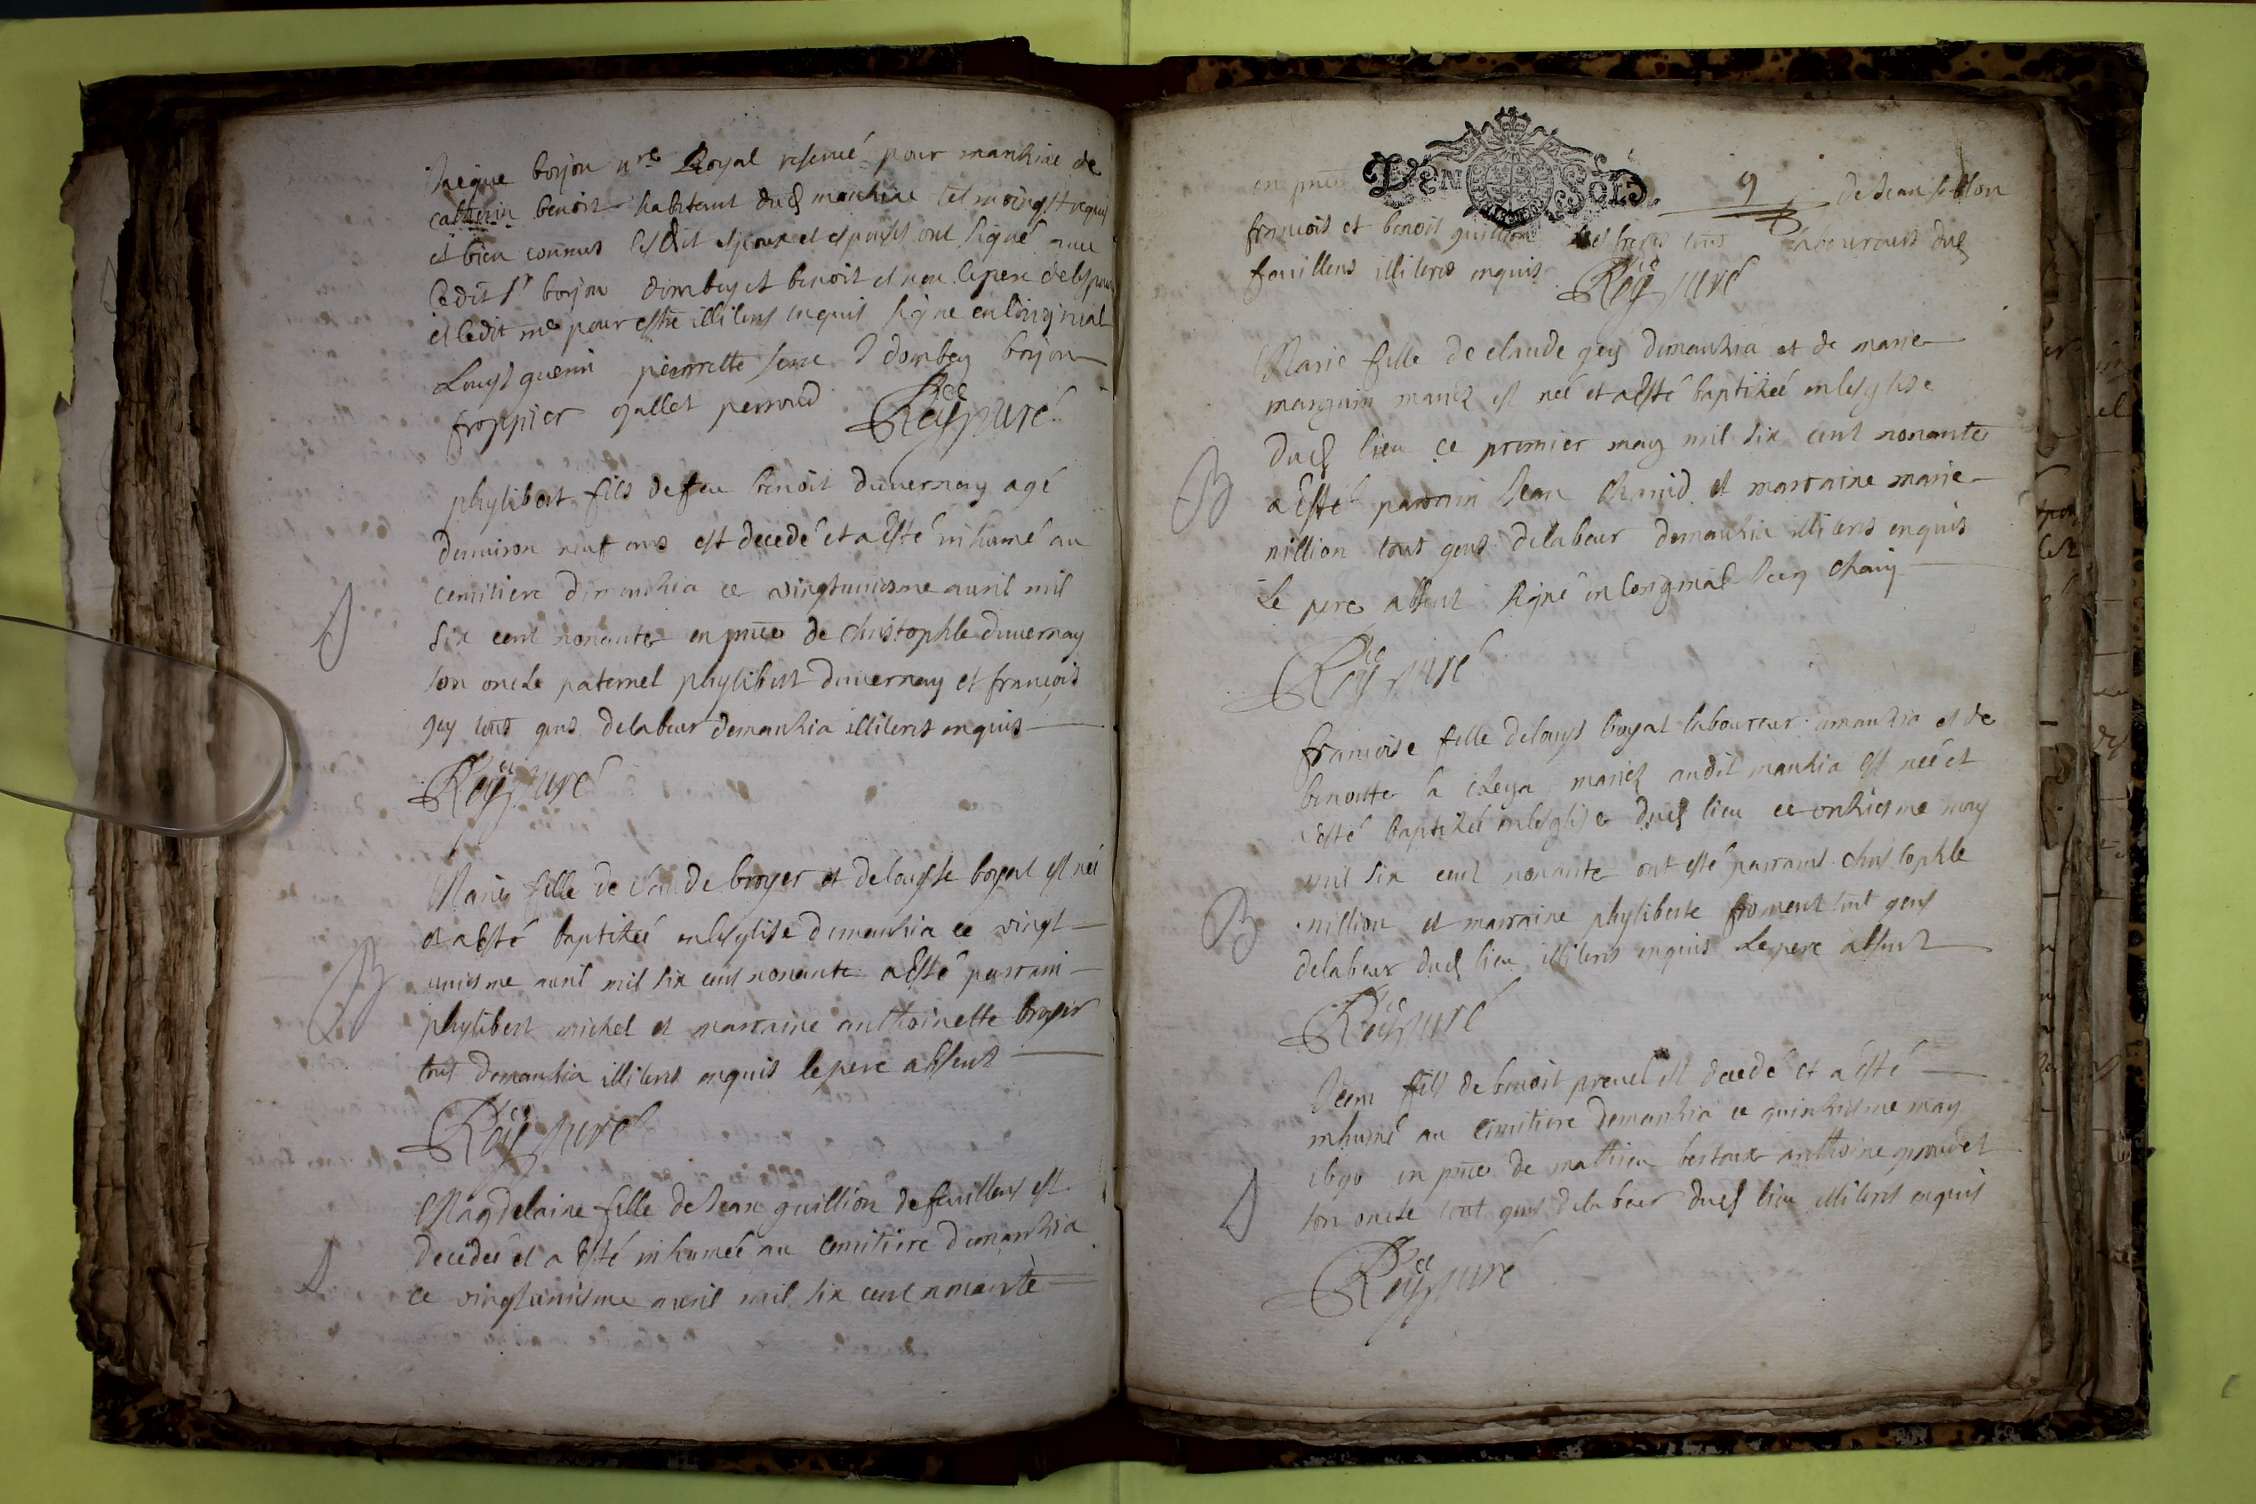 Jaque borjon n.re Royal reservé pour mankine de
catherin benoit habitant dud mankine tesmoings requis
et bien connus lesdit espoux et espouse ont signé avec
ledit sr borjon dombey et benoit et non le pere de lespouse
et ledit me pour estre illiteres enquis signé en loriginal
Louys guerin pierrette J dombey borjon
froppier gallet perroud
Rey curé
phylibert fils de feu benoit duvernay agé
denviron neuf ans est decedé et a esté inhumé au
cemitiere de mankia ce vingtuniesme avril mil
six cent nonante en pnce de christophle duvernay
son oncle paternel phylibert duvernay et françois
gey tous gens de labeur de mankia illiteres enquis
Rey curé
Marie fille de claude broyer et de louyse boyat est née
et a esté baptizée en lesglise de mankia ce vingt
uniesme avril mil six cens nonante a esté parrain
phylibert michel et marraine anthoinette broyer
tous de mankia illiteres enquis le pere absent
Rey curé
Magdelaine fille de Jean guillion de feuillens est
decedée et a esté inhumée au cemitiere de mankia
ce vingtuniesme avril mil six cent nonante
VEN SOLS
9
en pnce de Jean
françois et benoit guillion ses freres tous laboureurs dud
feuillens illiteres enquis
Rey curé
Marie fille de claude gey de mankia et de marie
manguin mariez est née et a esté baptizée en lesglise
dud lieu ce premier may mil six cent nonante
a esté parrain Jean et marraine marie
nillion tous gens de labeur de mankia illiteres enquis
Le pere absent signé en loriginal
Rey curé
françoise fille de louys boyat laboureur de mankia et de
benoitte la mariez audit mankia est née et
a esté baptizée en lesglise dud lieu ce onziesme may
mil six cent nonante ont esté parrains christophle
nillion et marraine phyliberte froment tout gens
de labeur dud lieu illiteres enquis le pere absent
Rey curé
Jean fils de benoit preuel est decedé et a esté
inhumé au cemitiere de mankia ce quinziesme may
1690 en pnce de mathieu bertoux anthoine
son oncle tout gens de labeur dud lieu illiteres enquis
Rey curé